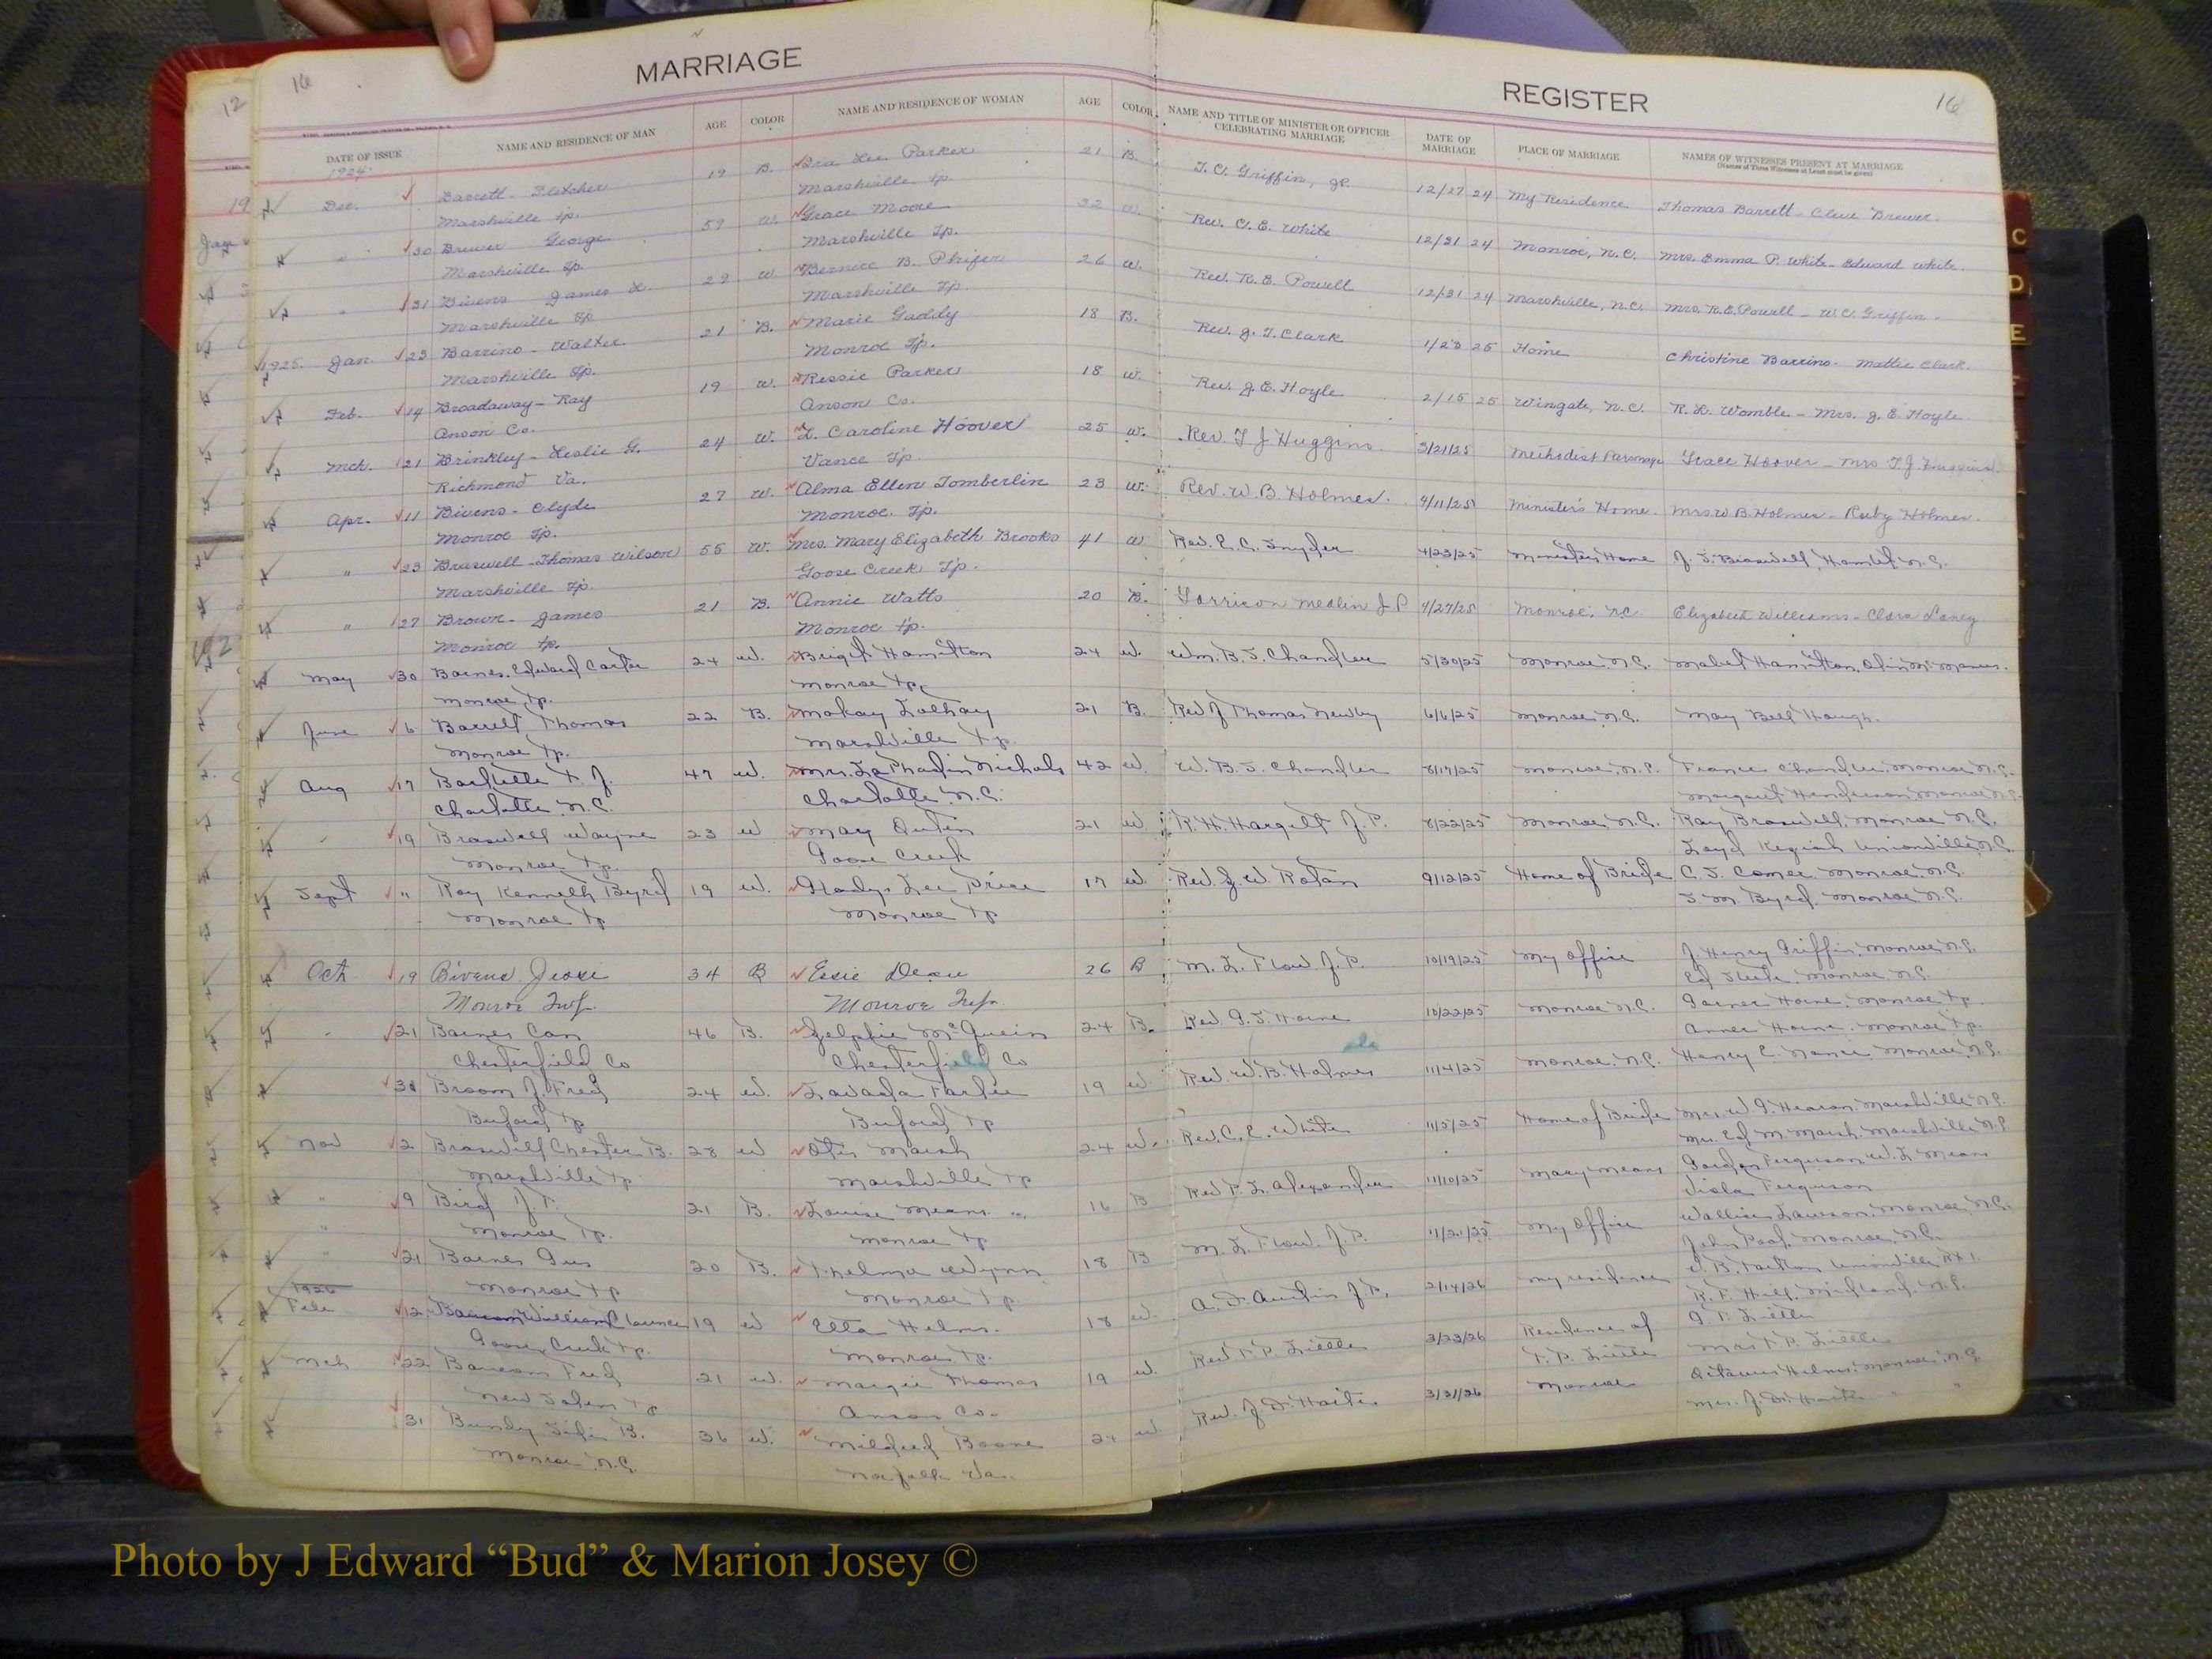 16
MARRIAGE
REGISTER
16
12
DATE OF ISSUE
NAME AND RESIDENCE OF MAN
AGE
COLOR
NAME AND RESIDENCE OF WOMAN
AGE
COLOR
NAME AND TITLE OF MINISTER OR OFFICER CELEBRATING MARRIAGE
DATE OF MARRIAGE
PLACE OF MARRIAGE
NAMES OF WITNESSES PRESENT AT MARRIAGE
(Names of Three Witnesses at Least must be given)
1924
Dec. Barrett - Fletcher 19 B. Ira Lee Parker 21 B. T. C. Griffin, JP. 12/27 24 My Residence Thomas Barrett - Cleve Brewer.
Marshville Tp. Marshville Tp.
" 30 Brewer George 59 W. Grace Moore 32 W. Rev. C. E. White 12/31 24 Monroe, N.C. Mrs. Emma P. White - Edward White.
Marshville Tp. Marshville Tp.
" 31 Bivens James L. 29 W. Bernice B. Phifer 26 W. Rev. R. E. Powell 12/31 24 Marshville, N.C. Mrs. R.E. Powell - W.C. Griffin.
Marshville Tp Marshville Tp.
1925. Jan. 23 Barrino - Walter 21 B. Marie Gaddy 18 B. Rev. J. T. Clark 1/23 25 Home Christine Barrino - Mattie Clark.
Marshville Tp. Monroe Tp.
Feb. 14 Broadaway - Ray 19 W. Ressie Parker 18 W. Rev. J. E. Hoyle 2/15 25 Wingate, N.C. R. L. Womble - Mrs. J. E. Hoyle
Anson Co. Anson Co.
Mch. 21 Brinkley - Leslie G. 24 W. L. Caroline Hoover 25 W. Rev. T J Huggins. 3/21/25 Methodist Parsonage Grace Hoover - Mrs T.J. Huggins
Richmond Va. Vance Tp.
Apr. 11 Bivens - Clyde 27 W. Alma Ellen Tomberlin 23 W. Rev. W. B. Holmes. 4/11/25 Minister's Home. Mrs W B Holmes - Ruby Holmes.
Monroe Tp. Monroe. Tp.
" 23 Braswell - Thomas Wilson 55 W. Mrs. Mary Elizabeth Brooks 41 W Rev. E. C. Snyder 4/23/25 Ministers Home J. S. Braswell, Hamlet N.C.
Marshville Tp. Goose Creek Tp.
" 27 Brown - James 21 B. Annie Watts 20 B. Garrison Medlin J P 4/27/25 Monroe, N.C Elizabeth Williams - Clara Laney
Monroe Tp. Monroe Tp.
May 30 Barnes, Edward Carter 24 W. Bright Hamilton 24 W. Wm. B. S. Chandler 5/30/25 Monroe N.C. Mabel Hamilton, Olin McManus.
Monroe Tp. Monroe Tp,
June 6 Barrett Thomas 22 B. 21 B. Rev J Thomas Newby 6/6/25 Monroe N.C. May Bell Hough.
Monroe Tp. Marshville Tp.
Aug 17 T. J. 47 W. Mrs. Nichols 42 W. W. B. S. Chandler 8/17/25 Monroe, N.C. France Chandler, Monroe N.C.
Charlotte N.C. Charlotte N.C. Margaret Henderson Monroe N.C.
" 19 Braswell Wayne 23 W May 21 W R. H. Hargett J. P. 8/22/25 Monroe N.C. Ray Braswell, Monroe N.C.
Monroe Tp. Goose Creek Loyd Keziah Unionville N.C.
Sept " Roy Kenneth Byrd 19 W. Gladys Lee Price 17 W Rev. J. W. Rotan 9/12/25 Home of Bride C. J. Comer Monroe, N.C.
Monroe Tp Monroe Tp S. M. Byrd, Monroe N.C.
Oct 19 Bivens Jesse 34 B Essie Dean 26 B M. L. Flow J.P. 10/19/25 My office J. Henry Griffin, Monroe N.C.
Monroe Twp. Monroe Twp. Ed Steele, Monroe N.C.
" 21 Barnes Can 46 B. McQueen 24 B. Rev 10/22/25 Monroe N.C. Monroe Tp
Chesterfield Co Chesterfield Co Monroe Tp.
Broom J. Fred 24 W. 19 W Rev. W. B. Holmes 11/4/25 Monroe, N.C. Henry E. Nance, Monroe N.C.
Buford Tp Buford Tp
Nov 2 Braswell Chester B. 28 W Otis Marsh 24 W. Rev. C. E. White 11/5/25 Home of Bride Mrs. W. Marshville N.C.
Marshville Tp Marshville Tp Mrs. Ed M. Marsh, Marshville N.C.
" 9 Bird 21 B. Louise Means 16 B Rev P. L. Alexander 11/10/25 Mary Means Ferguson, W. L. Means
Monroe Tp. Monroe Tp Viola Ferguson
" 21 Barnes Gus 20 B. Thelma Wynn 18 B M. L. Flow. J.P. 11/21/25 My office Lawson, Monroe, N.C.
Monroe Tp Monroe Tp. John Monroe N.C.
1926
Feb 12 Baucom William Clarence 19 W Etta Helms. 18 W. A. D. Austin J.P. 2/14/26 My residence Unionville Rt 1.
Goose Creek Tp. Monroe Tp. Midland, N.C.
Mch 22 Baucom Fred 21 W. Margie Thomas 19 W. Rev T. P. Little 3/23/26 Residence of T. P. Little Little
New Salem Tp Anson Co. Mrs T. P. Little
31 Bundy B. 36 W. Mildred Boone 24 W Rev. J. D. 3/31/26 Monroe Helms, Monroe, N.C.
Monroe N.C. Norfolk Va. Mrs. J. D.
Photo by J Edward “Bud” & Marion Josey ©
C
D
E